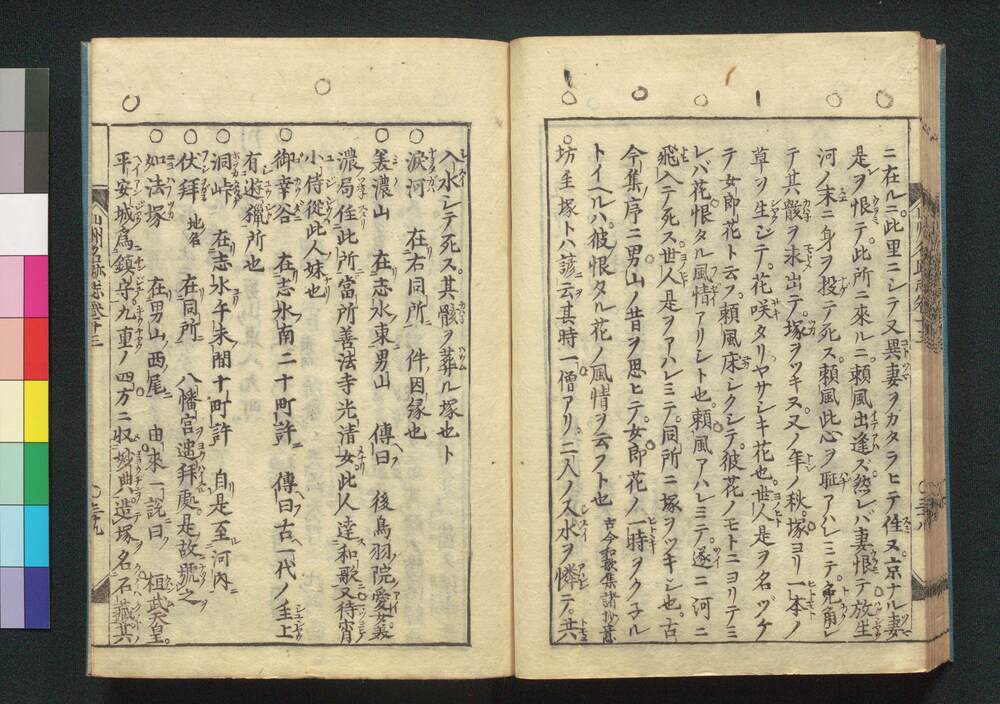 ニ在ルニ此里ニシテ又異妻ヲカタラヒテ住ヌ京ナル妻
是ヲ恨テ此所ニ來ルニ頼風出逢ズ然レバ妻恨テ放生
河ノ末ニ身ヲ投テ死ス頼風此心ヲ恥アハレミテ兎角シ
テ其骸ヲ求出テ塚ヲツキヌ又ノ年ノ秋塚ヨリ一本ノ
草ヲ生シテ花咲タリヤサシキ花也世人是ヲ名ヅケ
テ女郎花ト云フ頼風床シクシテ彼花ノモトニヨリテミ
レバ花恨タル風情アリシト也頼風アハレミテ遂ニ河ニ
飛入テ死ス世人是ヲアハレミテ同所ニ塚ヲツキシ也古
今集序ニ男山ノ昔ヲ思ヒテ女郎花ノ一時ヲクネル
トイヘルハ彼恨タル花ノ風情ヲ云フト也 古今和歌集諸抄意
坊主塚トハ諺云其時一僧アリ二人ノ入水ヲ憐テ共
入水シテ死ス其骸ヲ葬ル塚也ト
○涙河 在右同所 件因縁也
○美濃山 在志水東男山 傳曰 後鳥羽院愛妾美
濃局住此所當所善法寺光清女此人達和歌又待宵
小侍從此人妹也
○御幸谷 在志水南二十町許 傳曰古一代ノ主上
有遊獵所也
○洞峠 在志水午未間十町許 自是至河內
○伏拜 地名 在同所 八幡宮遙拜處是故號之
○如法塚 在男山西尾 由來一說曰 桓武天皇
平安城為鎮守九重ノ四方ニ収妙典造塚名石藏其
山州名跡志巻十三